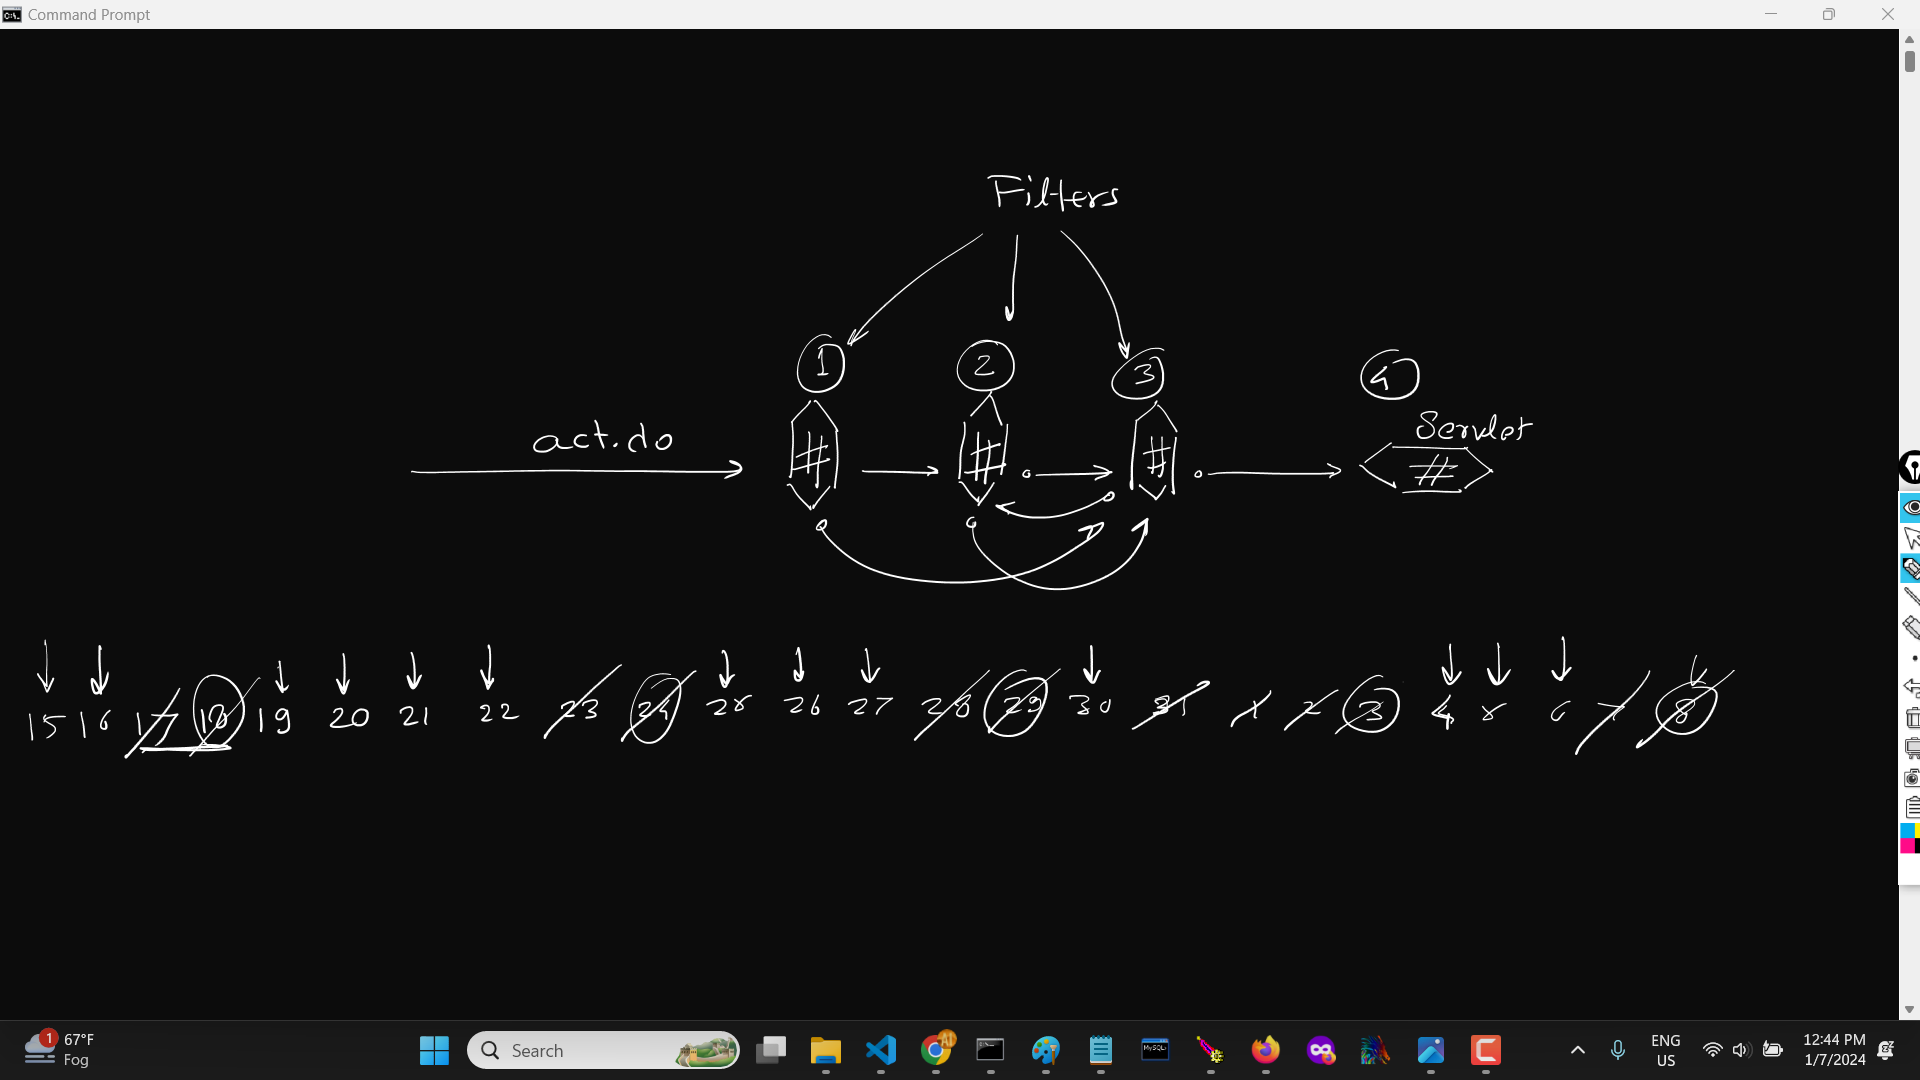 Command Prompt
Filters
1 2 3 4
Servlet
act.do
# # # #
15 16 17 18 19 20 21 22 23 24 25 26 27 28 29 30 31 1 2 3 4 5 6 7 8
1
67°F
Fog
Search
ENG
US
12:44 PM
1/7/2024